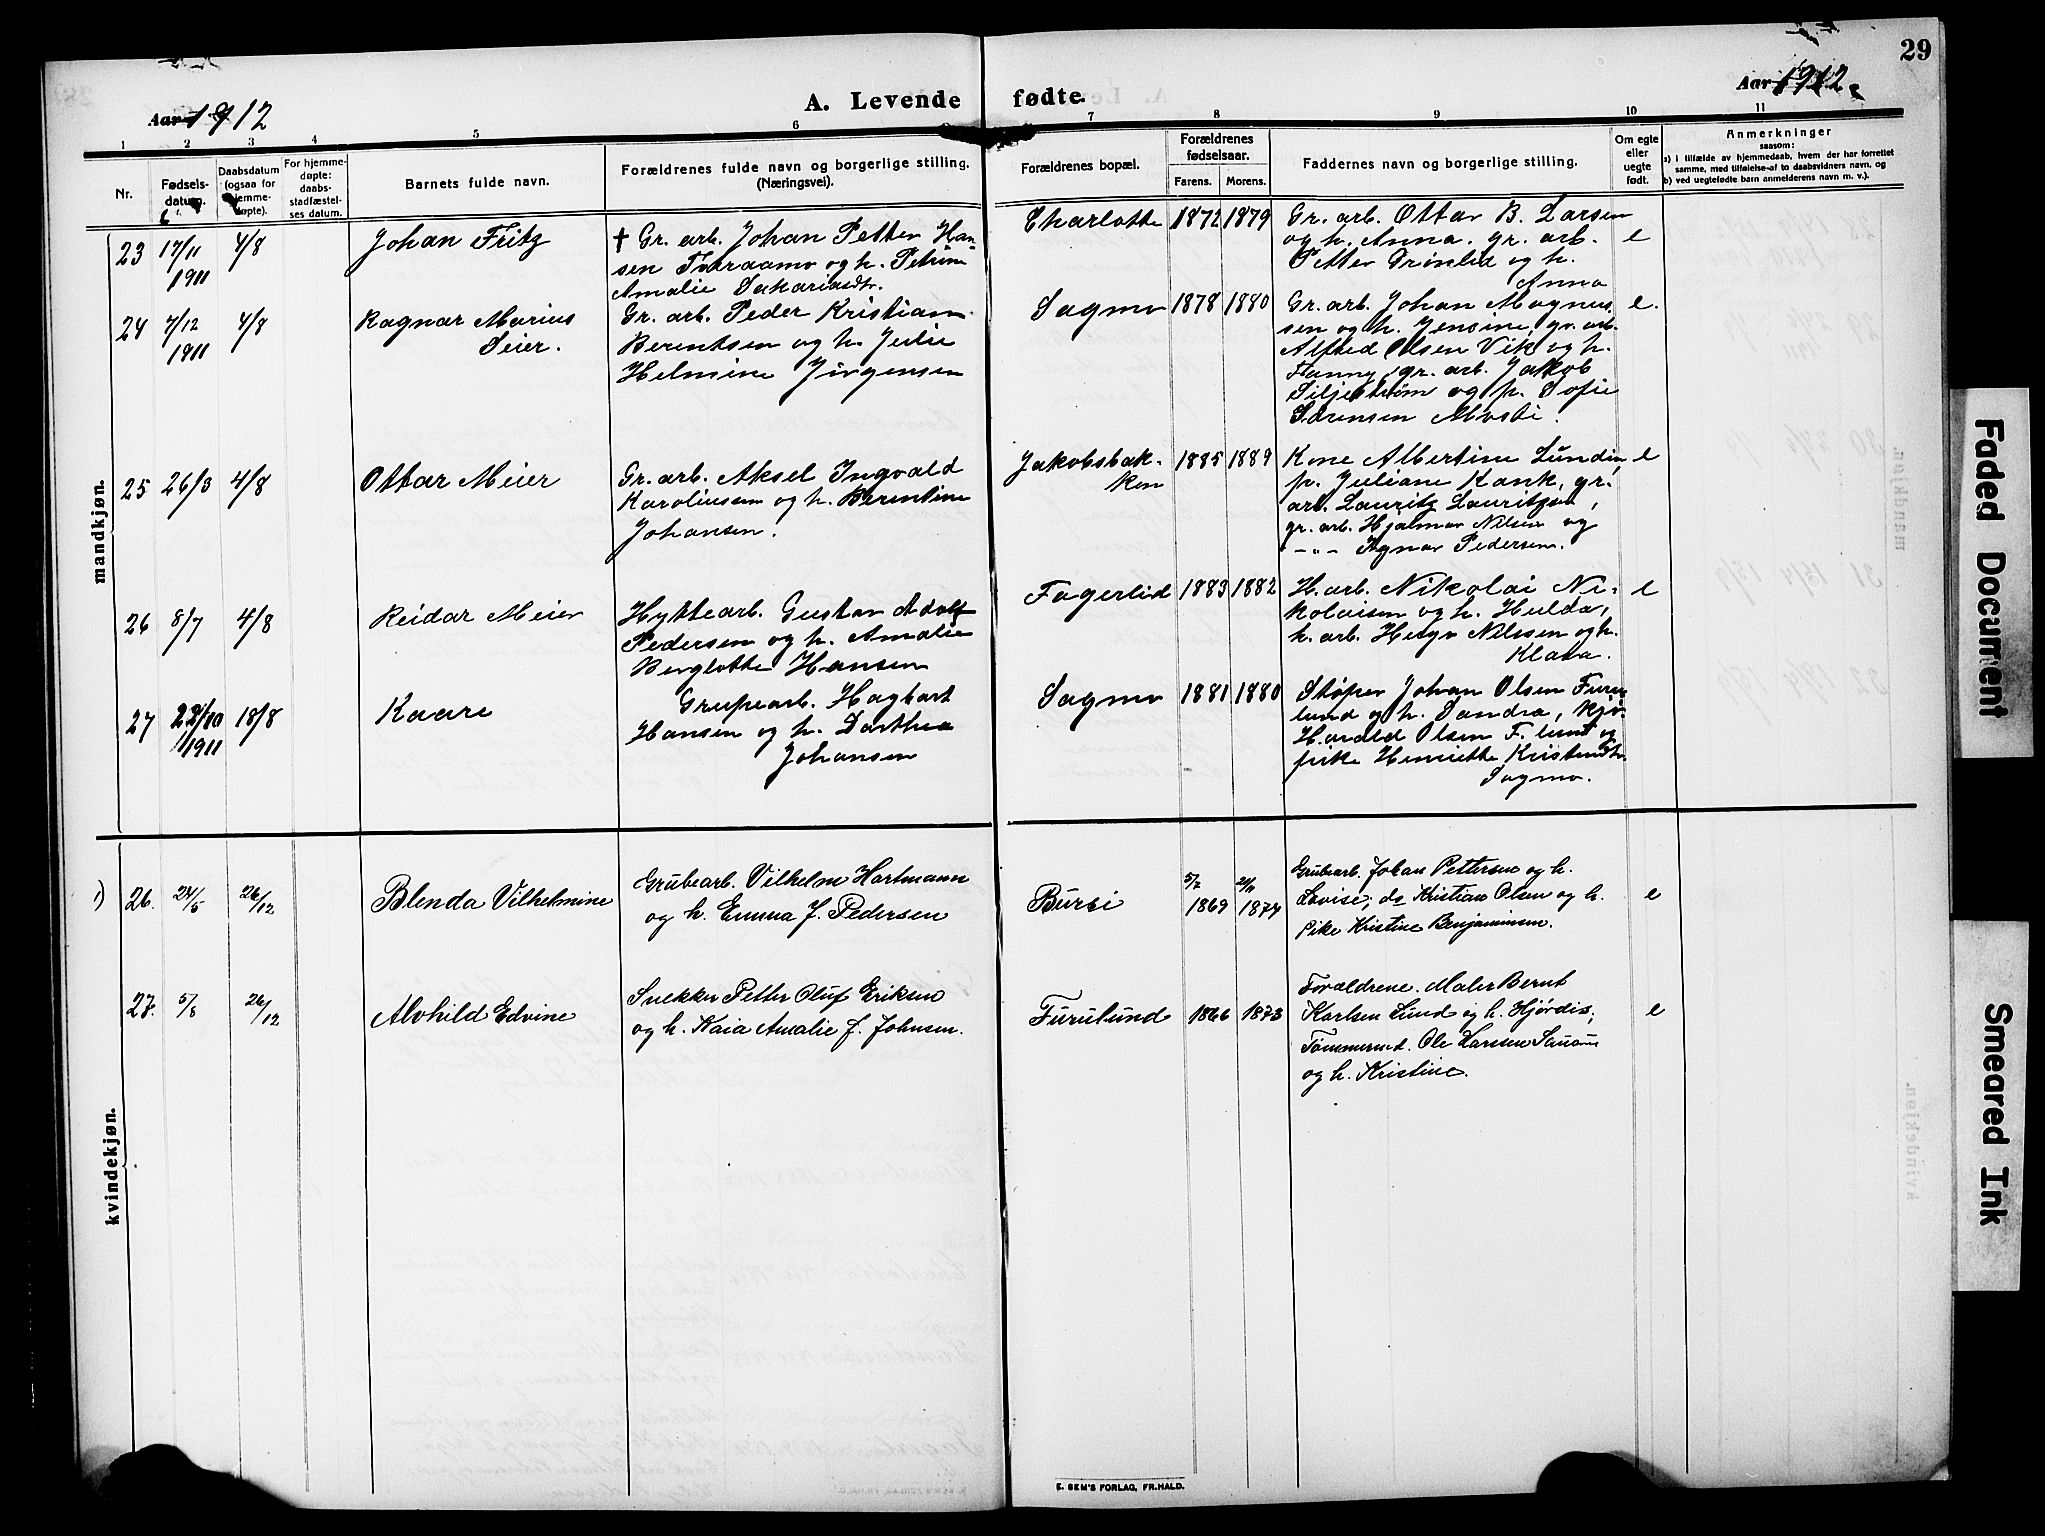 29
Aar 1912
A. Levende fødte.
Aar 1912.
1 2 3 4 5 6 7 8 9 10 11
Nr.
Fødsels-
datum.
Daabsdatum
(ogsaa for
hjemme-
døpte).
For hjemme-
døpte:
daabs-
stadfæstel-
ses datum.
Barnets fulde navn.
Forældrenes fulde navn og borgerlige stilling.
(Næringsvei).
Forældrenes bopæl.
Forældrenes
fødselsaar.
Farens. Morens.
Faddernes navn og borgerlige stilling.
Om egte
eller
uegte
født.
Anmerkninger
saasom:
a) i tilfælde av hjemmedaab, hvem der har forrettet
samme, med tilføielse af to daabsvidners navn, og
b) ved uegtefødte barn anmelderens navn m. v.).
mandkjøn.
23 17/11 1911 4/8
Johan Fritz
† Gr. arb. Johan Petter Han-
sen Tveraamo og h. Petrine
Amalie Sakariasdtr.
Charlotte 1872 1879
Gr. arb. Ottar B. Larsen
og h. Anna. gr. arb.
Petter Drønlid og h.
Anna
e
24 7/12 1911 4/8
Ragnar Marius
Seier.
Gr. arb. Peder Kristian
Berentsen og h. Julie
Helmine Jørgensen
Sagmo 1878 1880
Gr. arb. Johan Magnus-
sen og h. Jensine, gr. arb.
Alfred Olsen Vik og h.
Fanny, gr. arb. Jakob
Siljestrøm og p. Sofie
Sørensen Mosti.
e.
25 26/3 4/8
Ottar Meier
Gr. arb. Aksel Ingvald
Karoliussen og h. Berentine
Johansen.
Jakobsbak-
ken
1885 1889
Kone Albertine Lundin,
p. Juliane Kank, gr.
arb. Lauritz Lauritzen,
gr. arb. Hjalmar Nilsen og
- „ - Agnar Pedersen.
e
26 8/7 4/8
Reidar Meier
Hyttearb. Gustav Adolf
Pedersen og h. Amalie
Berglotte Hansen
Fagerlid 1883 1882
H. arb. Nikolai Ni-
kolaisen og h. Hulda,
h. arb. Helge Nilssen og h.
Klara.
e
27 22/10 1911 18/8
Kaare
Grubearb. Hagbart
Hansen og h. Dorthea
Johansen
Sagmo 1881 1880
Støper Johan Olsen Furu-
lund og h. Sandra, kjø.
Harald Olsen F. lund og
pike Henriette Kristensdtr.
Sagmo.
kvindekjøn.
1) 26. 24/5 26/12
Blenda Vilhelmine
Grubearb. Vilhelm Hartmann
og h. Emma J. Pedersen
Bursi
5/2 1869 21/11 1874
Grubearb. Johan Pettersen og h.
Lovise; do Kristian Olsen og h.
Pike Kristine Benjaminsen.
e
27. 5/8 26/12
Alvhild Edvine
Snekker Petter Oluf Eriksen
og h. Kaia Amalie J. Johnsen.
Furulund 1866 1873
Forældrene. Maler Bernt
Karlsen Lund og h. Hjørdis;
Tømmermd. Ole Larssen
og h. Kristine.
e
E. SEM'S FORLAG, FR.HALD.
Faded Document
Smeared Ink